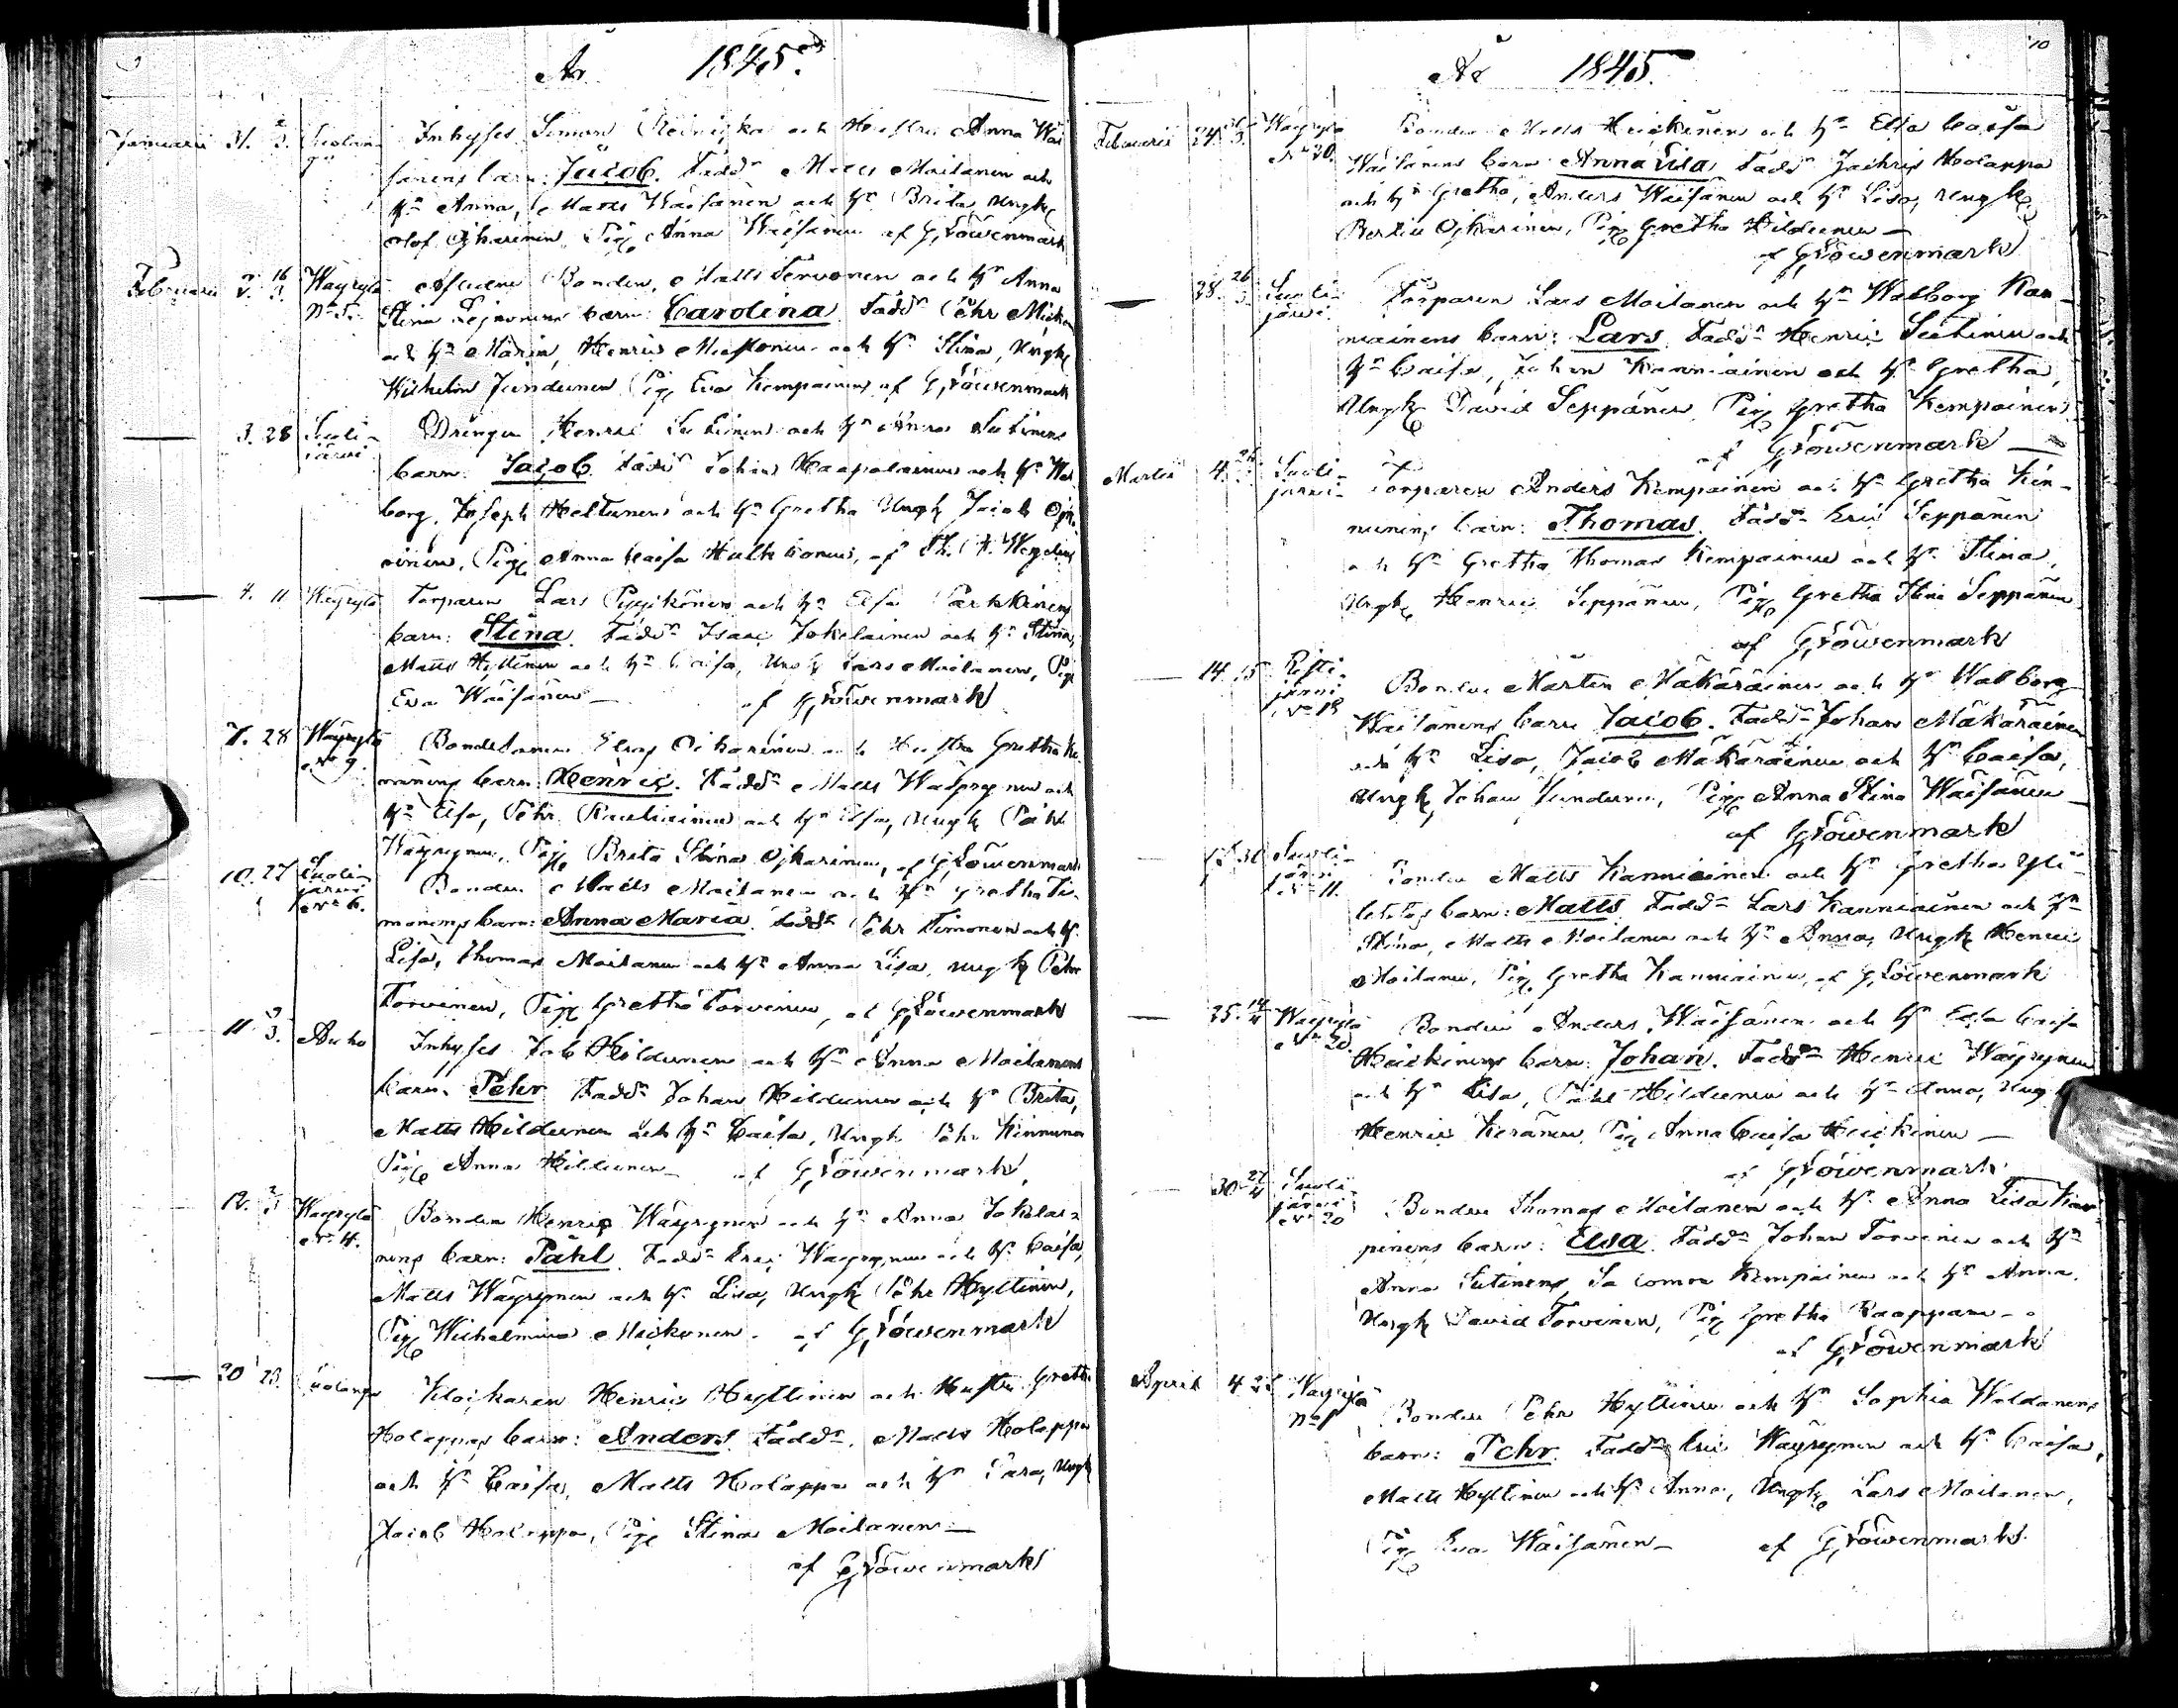 År 1845.
Januarii 31. 2/3. Inhyses Simon och Hustru Anna Wäi
sänens barn: Jacob. Fadd:r Matts Moilanen och
h:n Anna, Matts Wäisänen och h:n Brita, Ungk
Olof Ojkarinen, Pig Anna Wäisänen af G, Löwenmark
Februarii 2. 16/3. Wäyrylä Afledne Bonden, Matts Tervonen och h:n Anna
N:o 5. Stina barn: Carolina. Fadd:r Pehr
och h:n Maria, Henric och h:n Stina, Ungk
Wilhelm Jundunen Pig Eva Kempainen af G, Löwenmark
3. 28 Suoli- Drängen Henric Sutinen och h:n Anna Sutinens
järvi barn: Jacob. Fadd:r Johan Haapalainen och h:n Wal
borg, Joseph Heltunen och h:n Gretha Ungk Jacob Ojka
rinen, Pig Anna Caisa Hulkkonen, af
4. 11 Wäyrylä Torparen Lars Pyykönen och h:n Elsa Parkkinens
barn: Stina. Fadd:r Isaac Jokelainen och h:n Stina,
Matts Hyttinen och h:n Caisa, Ungk Lars Moilanen, Pig
Eva Wäisänen — af G, Löwenmark
7. 28 Wäyrylä Bondesonen Elias Ojkarinen och Hustru Gretha Ke
N:o 9. ränens barn: Henric. Fadd:r Matts Wäyrynen och
h:n Elsa, Pehr Rautiainen och h:n Elsa, Ungk Påhl
Wäyrynen, Pig Brita Stina Ojkarinen, af G, Löwenmark
10. 27 Suoli-
järvi Bonden Matts Moilanen och h:n Gretha Ti-
N:o 6. monens barn: Anna Maria. Fadd:r Pehr Timonen och h:n
Lisa, Thomas Moilanen och h:n Anna Lisa, Ungk Pehr
Torvinen, Pig Gretha Torvinen, af G, Löwenmark
11. 9/3. Auho Inhyses Job Hildunen och h:n Anna Moilanens
barn: Pehr Fadd:r Johan Hildunen och h:n Brita,
Matts Hildunen och h:n Caisa, Ungk Pehr Kinnunen
Pig Anna Hildunen — af G, Löwenmark,
12. 2/3 Wäyrylä Bonden Henric Wäyrynen och h:n Anna Jokelai-
N:o 4. nens barn: Påhl. Fadd:r Eric Wäyrynen och h:n Caisa,
Matts Wäyrynen och h:n Lisa, Ungk Pehr Hyttinen,
Pig Wilhelmina Mickonen. af G, Löwenmark
20 23. Klockaren Henric Hyttinen och Hustru Gretha
Holappas barn: Anders. Fadd:r Matts Holappa
och h:n Caisa, Matts Holappa och h:n Sara, Ungk
Jacob Holappa, Pig Stina Moilanen —
af G, Löwenmark
10
År 1845.
Februarii 24. Wäyrylä Bonden Matts Heickinen och h:n Elsa Caisa
N:o 20. Wäisänens barn: Anna Lisa. Fadd:r Zachris Holappa
och h:n Gretha, Anders Wäisänen och h:n Lisa, Ungk
Bertil Ojkarinen, Pig Gretha Hildunen —
af G, Löwenmark
— 28. 26/3 Suoli- Torparen Lars Moilanen och h:n Walborg Kan-
järvi. niainens barn: Lars Fadd:r Henric Sutinen och
h:n Caisa, Johan Kanniainen och h:n Gretha,
Ungk David Seppänen, Pig Gretha Kempainen
af G, Löwenmark —
Martii 4. 26/3 Suoli-
järvi- Torparen Anders Kempainen och h:n Gretha Kin-
nunens barn: Thomas. Fadd:r Eric Seppänen
och h:n Gretha Thomas Kempainen och h:n Stina,
Ungk Henric Seppänen, Pig Gretha Stina Seppänen
af G, Löwenmark
— 14 15 Risti-
järvi Bonden Mårten Mäkäräinen och h:n Walborg
N:o 18 Wäisänens barn Jacob. Fadd:r Johan Mäkäräinen
och h:n Lisa, Jacob Mäkäräinen och h:n Caisa,
Ungk Johan Jundunen, Pig Anna Stina Wäisänen —
af G, Löwenmark
— 30 Suoli-
järvi Bonden Matts Kanniainen och h:n Gretha Yli-
N:o 11. barn: Matts. Fadd:r Lars Kanniainen och h:n
Stina, Matts Moilanen och h:n Anna, Ungk Henric
Moilanen, Pig Gretha Kanniainen, af G, Löwenmark
— 25. 14/4 Wäyrylä Bonden Anders Wäisänen och h:n Elsa Caisa
N:o 20. Heickinens barn: Johan. Fadd:r Henric Wäyrynen
och h:n Lisa, Påhl Hildunen och h:n Anna, Ungk
Henric Keränen, Pig Anna Caisa Heickinen —
af G, Löwenmark
— 30 27/4 Suoli-
järvi Bonden Thomas Moilanen och h:n Anna Lisa
N:o 20 barn: Elsa. Fadd:r Johan Torvinen och h:n
Anna Sutinens, Salomon Kempainen och h:n Anna,
Ungk David Torvinen, Pig Gretha —
af G, Löwenmark
April 4 Wäyrylä
N:o 1 Bonden Pehr Hyttinen och h:n Sophia Woldanens
barn: Pehr. Fadd:r Eric Wäyrynen och h:n Caisa,
Matts Hyttinen och h:n Anna, Ungk Lars Moilanen,
Pig Eva Wäisänen — af G, Löwenmark